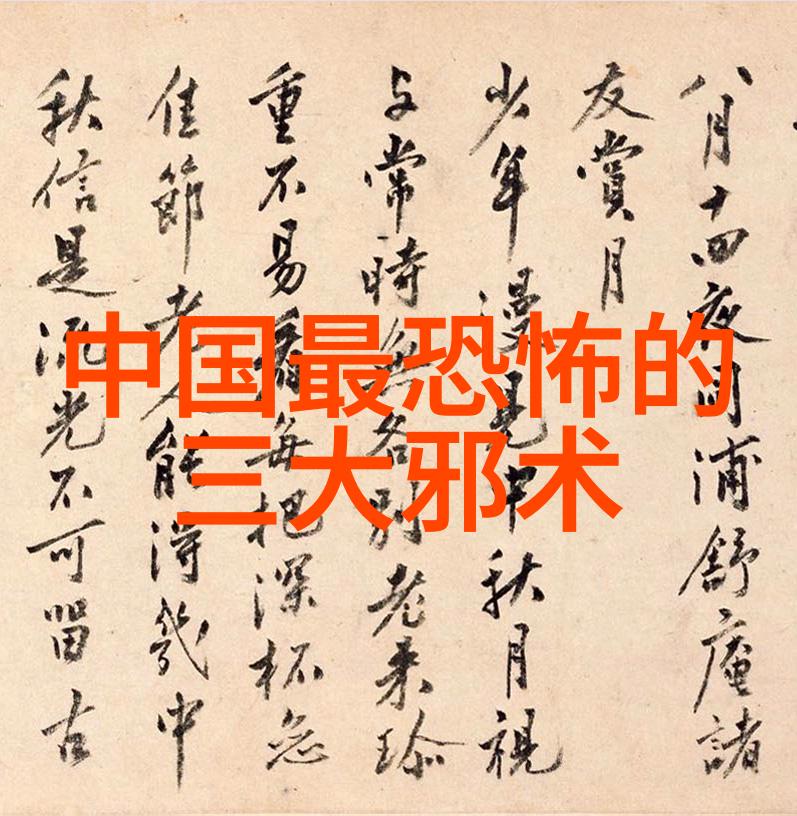 中国最恐怖的
三大邪术
八月十四夜同浦舒庵諸
友賞月
少年漫見中秋月視
与常時各別老来珍
重不易看每把深杯念
佳節老人能淂幾中
秋信是流光不可留古